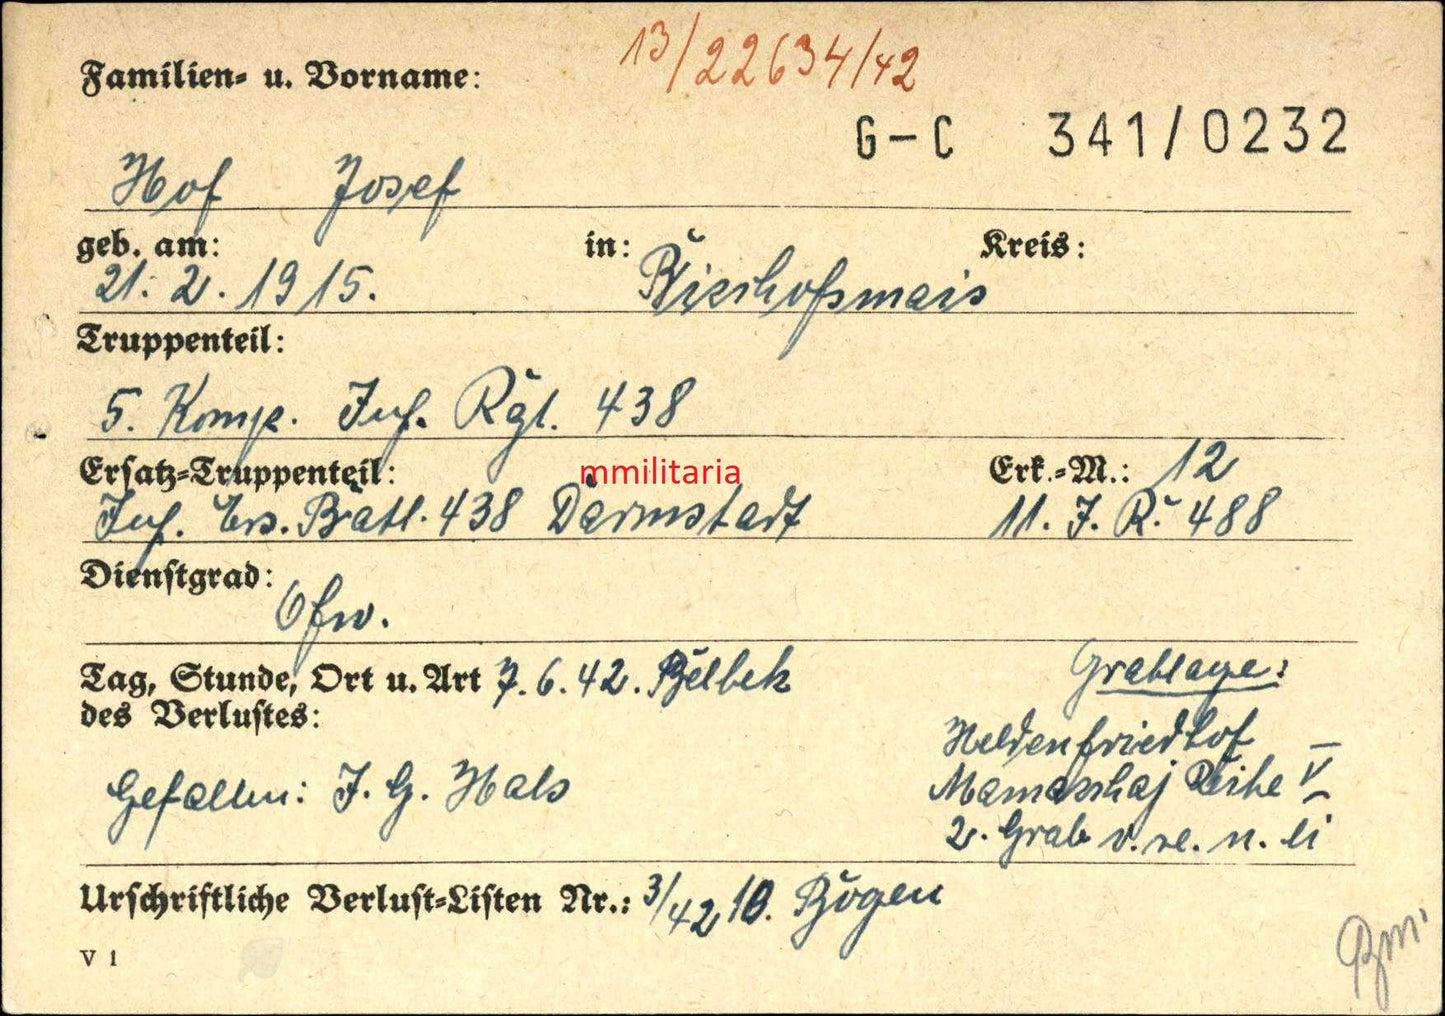 13/22634/42
Familien- u. Vorname:
G-C 341/0232
Hof Josef
geb. am: in: Kreis:
21. 2. 1915. Bischofsmais
Truppenteil:
5. Komp. Inf. Rgt. 438
Ersatz-Truppenteil: mmilitaria Erk.-M.: 12
Inf. Ers. Batl. 438 Darmstadt 11. I. R. 488
Dienstgrad:
Ofw.
Tag, Stunde, Ort u. Art 7. 6. 42. Belbek Grablage:
des Verlustes:
Heldenfriedhof
Gefallen: I. G. Hals
Mamaschaj Reihe V
2. Grab v. re. n. li
Urschriftliche Verlust-Listen Nr.: 3/42 10. Bogen
V 1